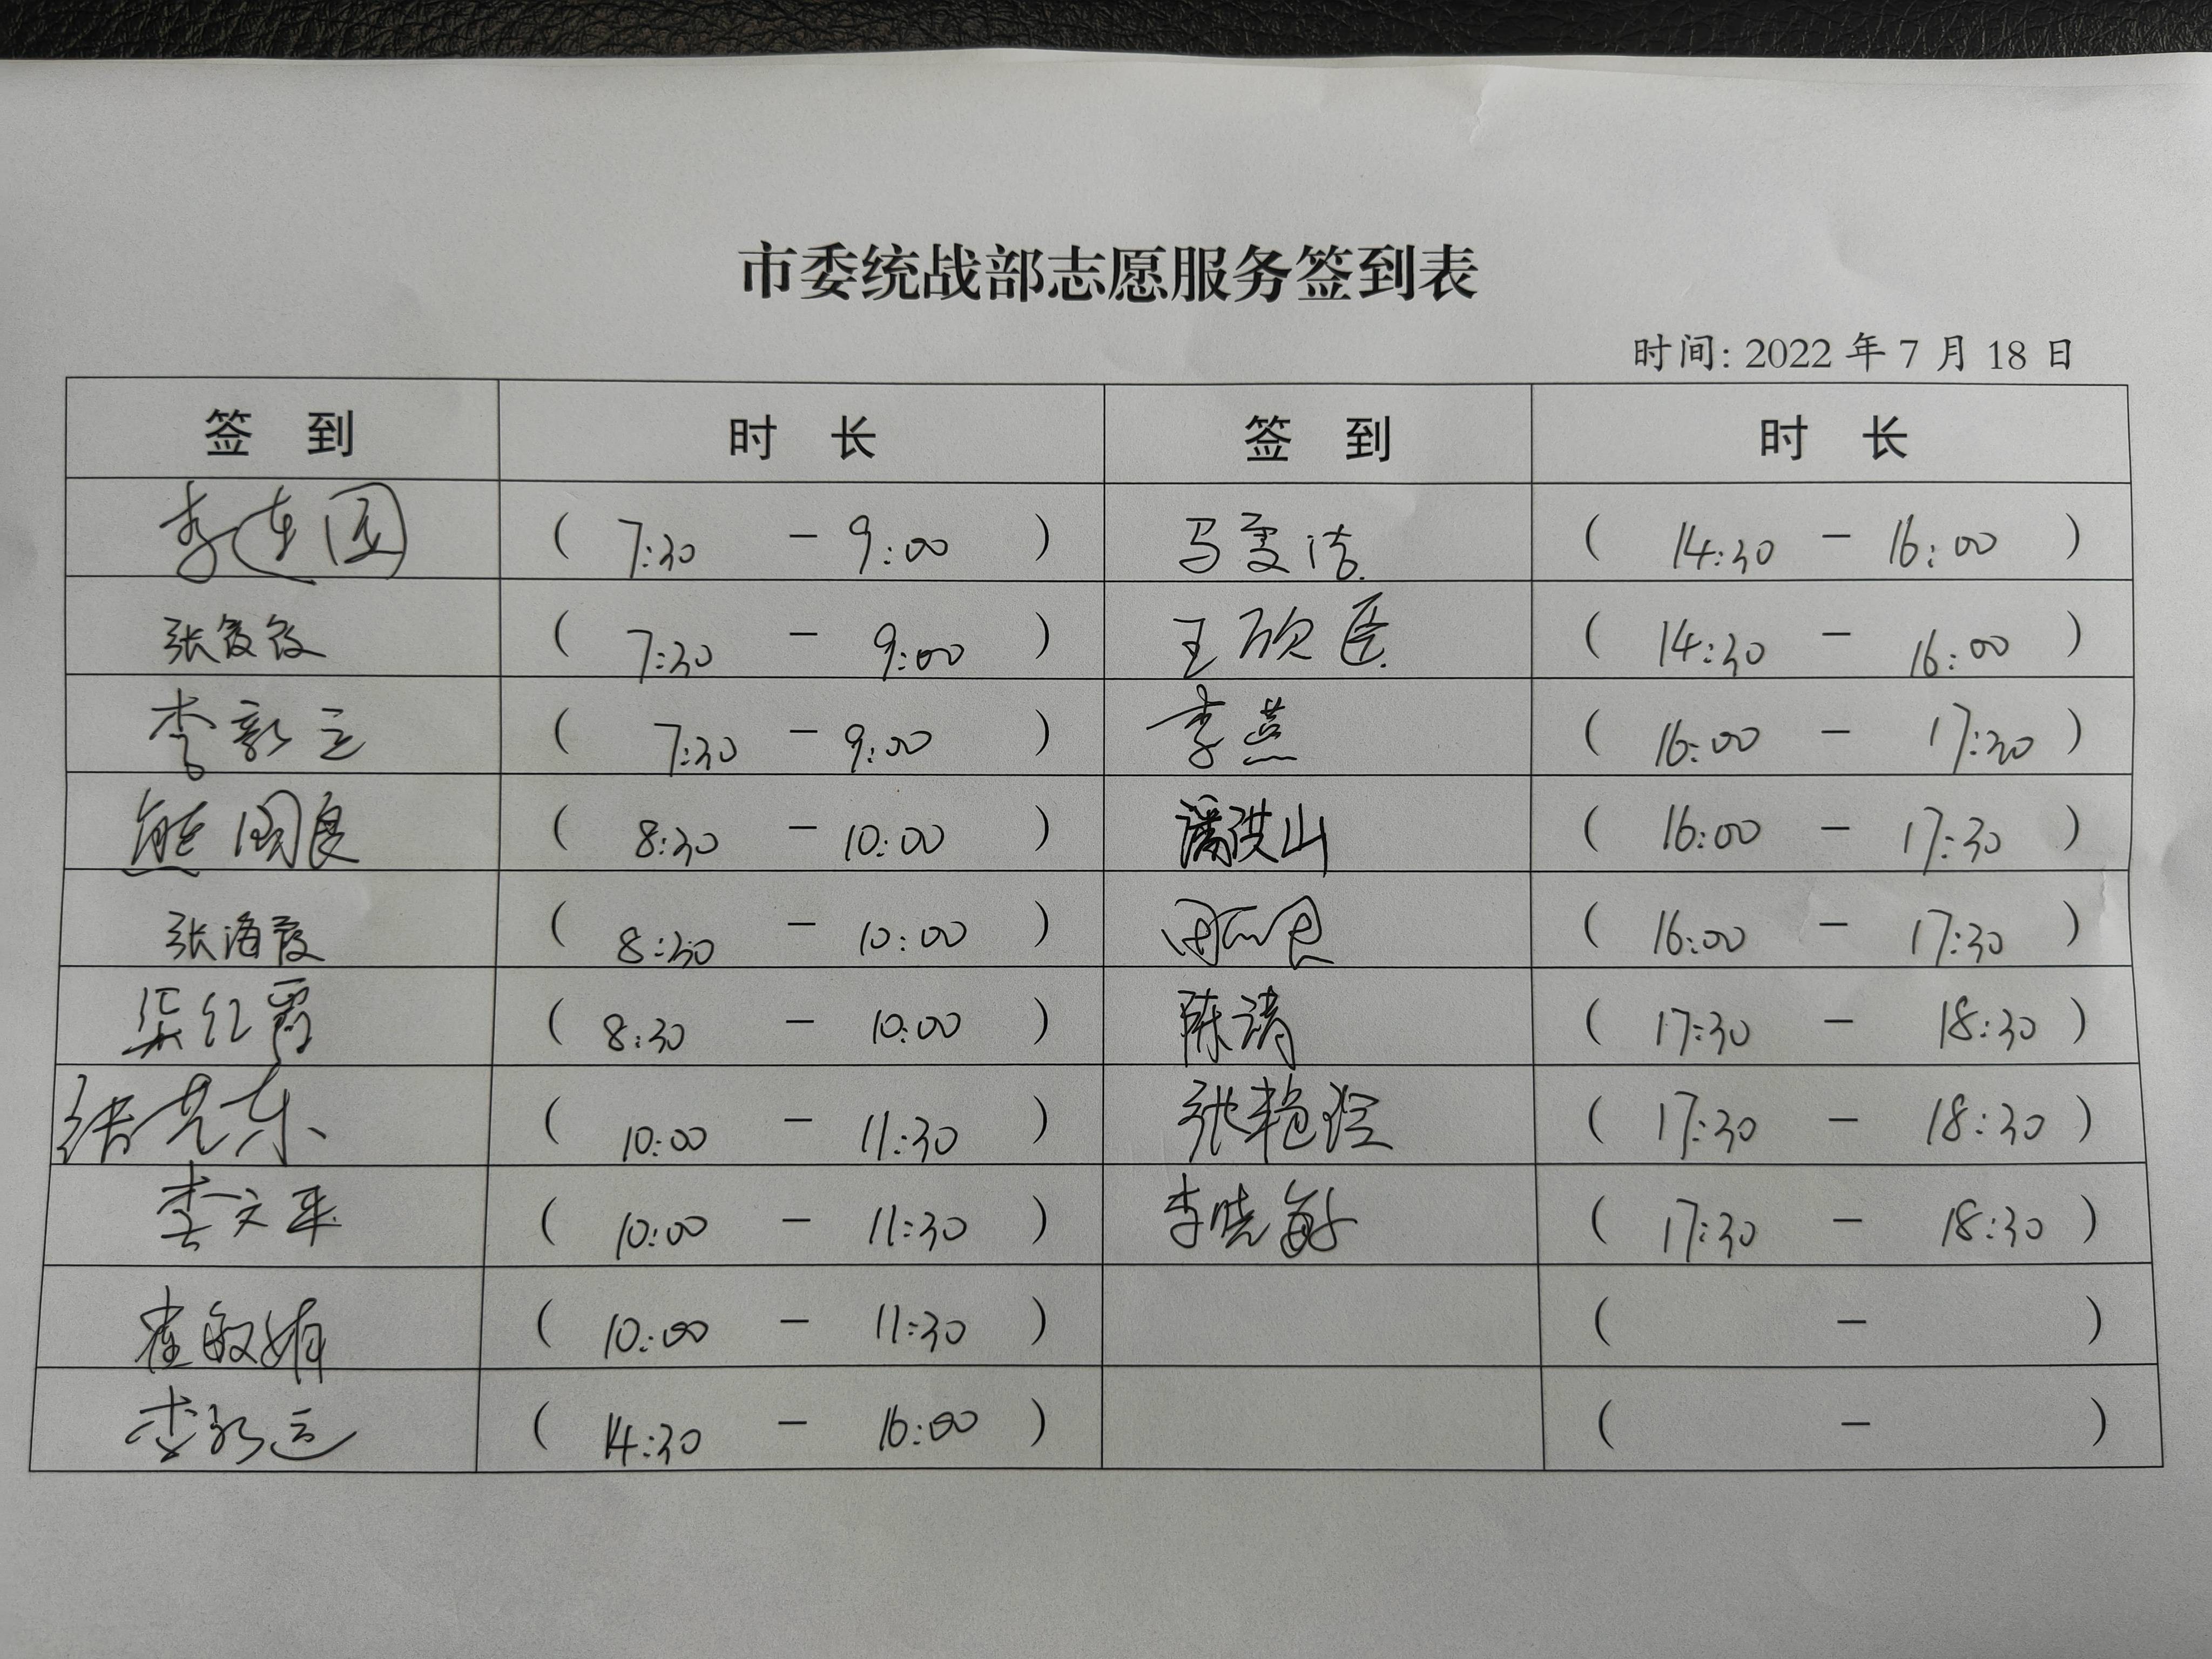 市委统战部志愿服务签到表
时间: 2022 年 7 月 18 日
签 到 时 长 签 到 时 长
李连国 ( 7:30 - 9:00 ) 马雯洁 ( 14:30 - 16:00 )
张 ( 7:30 - 9:00 ) 王欣 ( 14:30 - 16:00 )
李新 ( 7:30 - 9:00 ) 李燕 ( 16:00 - 17:30 )
熊国良 ( 8:30 - 10:00 ) 潘洪山 ( 16:00 - 17:30 )
张海霞 ( 8:30 - 10:00 ) ( 16:00 - 17:30 )
梁红霄 ( 8:30 - 10:00 ) 陈靖 ( 17:30 - 18:30 )
张东 ( 10:00 - 11:30 ) 张艳玲 ( 17:30 - 18:30 )
李文平 ( 10:00 - 11:30 ) 李晓敏 ( 17:30 - 18:30 )
崔敬娟 ( 10:00 - 11:30 ) ( - )
李运 ( 14:30 - 16:00 ) ( - )